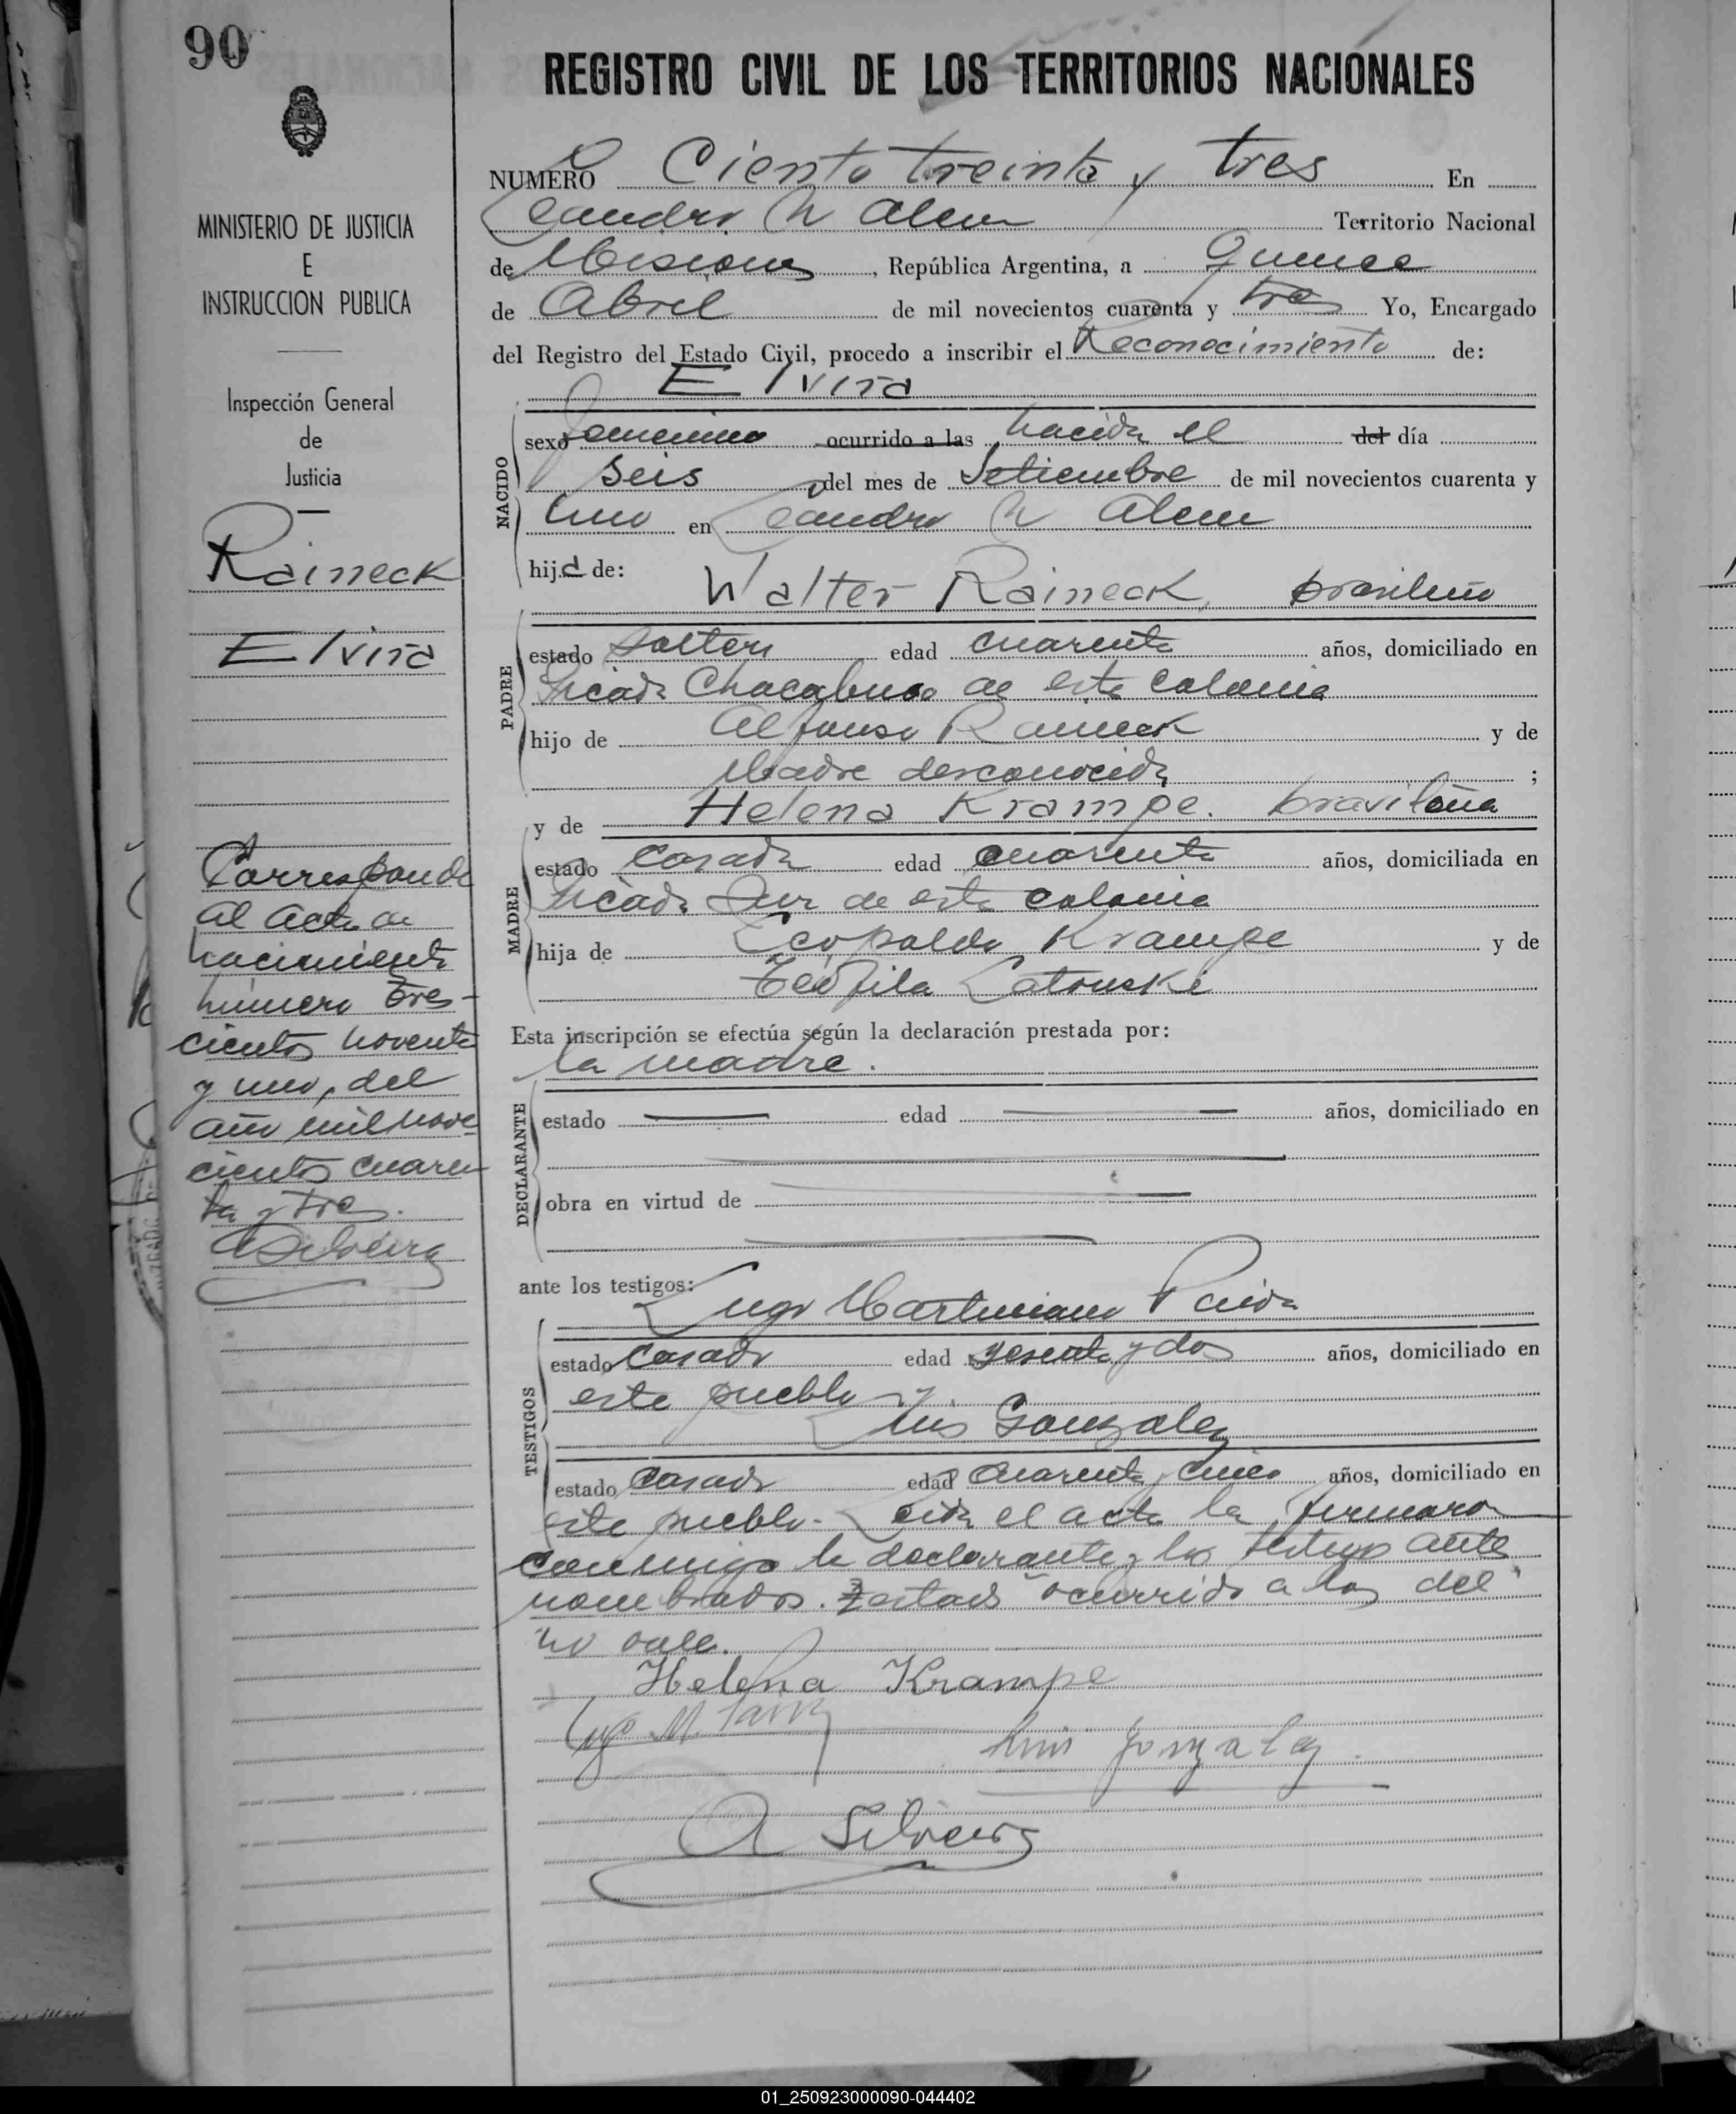 90
REGISTRO CIVIL DE LOS TERRITORIOS NACIONALES
MINISTERIO DE JUSTICIA
E
INSTRUCCION PUBLICA
Inspección General
de
Justicia
Raineck
Elvira
Corresponde
al acta de
nacimiento
número tres-
cientos noventa
y uno, del
año mil nove
cientos cuaren
ta y tres.
A Silveira
NUMERO Ciento treinta y tres En
Leandro N Alem Territorio Nacional
de Misiones, República Argentina, a Quince
de Abril de mil novecientos cuarenta y tres Yo, Encargado
del Registro del Estado Civil, procedo a inscribir el Reconocimiento de:
Elvira
NACIDO
sexo femenino ocurrido a las nacida el del día
seis del mes de Setiembre de mil novecientos cuarenta y
uno en Leandro N Alem
hija de: Walter Raineck, brasileño
PADRE
estado soltero edad cuarenta años, domiciliado en
Picada Chacabuco de esta colonia
hijo de Alfonso Raineck y de
Madre desconocida ;
y de Helena Krampe. brasileña
MADRE
estado casada edad cuarenta años, domiciliada en
Picada Sur de esta colonia
hija de Leopoldo Krampe y de
Teófila Latouski
Esta inscripción se efectúa según la declaración prestada por:
la madre.
DECLARANTE
estado edad años, domiciliado en
obra en virtud de
ante los testigos: Lugo Martiniano Paiva
TESTIGOS
estado casado edad sesenta y dos años, domiciliado en
este pueblo y
Luis Gonzalez
estado casado edad cuarenta y cinco años, domiciliado en
este pueblo. Leida el acta la firmaron
conmigo la declarante y los testigos ante
nombrados. Testado "ocurrido a las del"
no vale.
Helena Krampe
Lugo M. Paiva
Luis Gonzalez
A Silveira
01_250923000090-044402